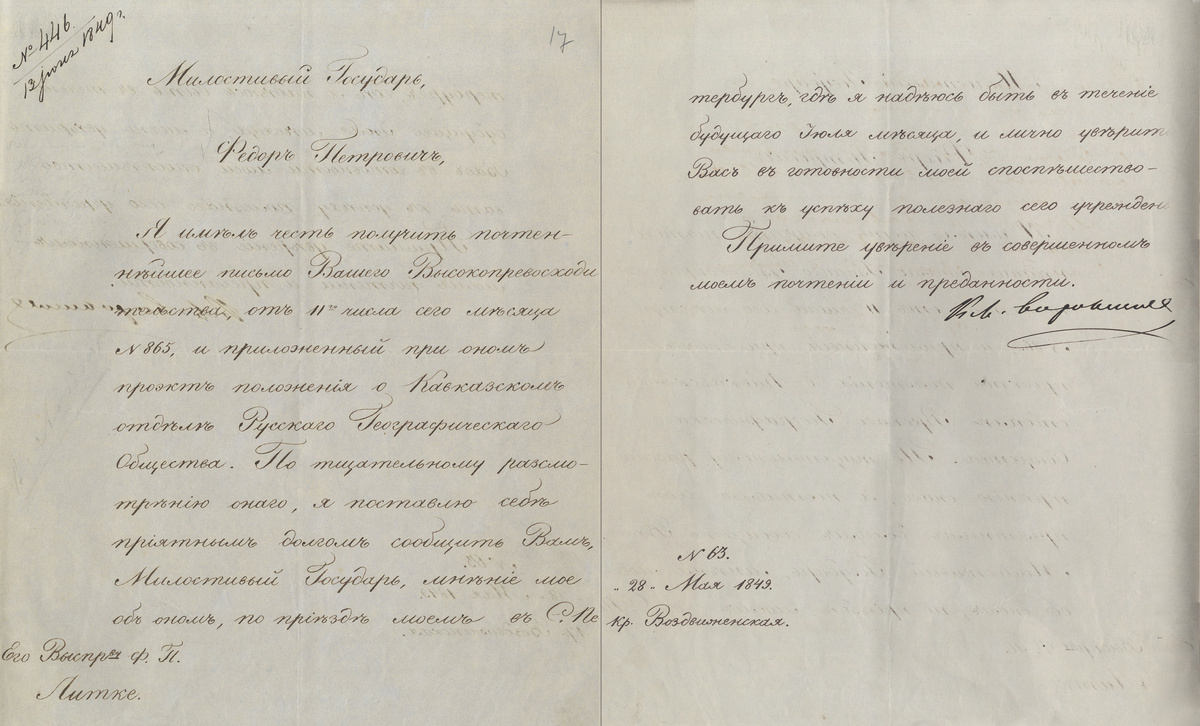 № 446.
13 юня 1849 г.
17
Милостивый Государь,
Федоръ Петровичъ,
Я имѣлъ честь получить почтен-
нѣйшее письмо Вашего Высокопревосходи
тельства, отъ 11го числа сего мѣсяца
№ 865, и приложенный при ономъ
проэктъ положенія о Кавказскомъ
отдѣлѣ Русскаго Географическаго
Общества. По тщательному разсмо-
трѣнію онаго, я поставлю себѣ
пріятнымъ долгомъ сообщить Вамъ,
Милостивый Государь, мнѣніе мое
объ ономъ, по пріѣздѣ моемъ въ С. Пе
Его Выспрву Ф. П.
Литке.
тербургъ, гдѣ я надѣюсь быть въ теченіе
будущаго Іюля мѣсяца, и лично увѣрить
Васъ въ готовности моей споспѣшество-
вать къ успѣху полезнаго сего учрежден
Примите увѣреніе въ совершенномъ
моемъ почтеніи и преданности.
Кн. Воронцовъ
№ 63.
„28„ Мая 1849.
Кр. Воздвиженская.